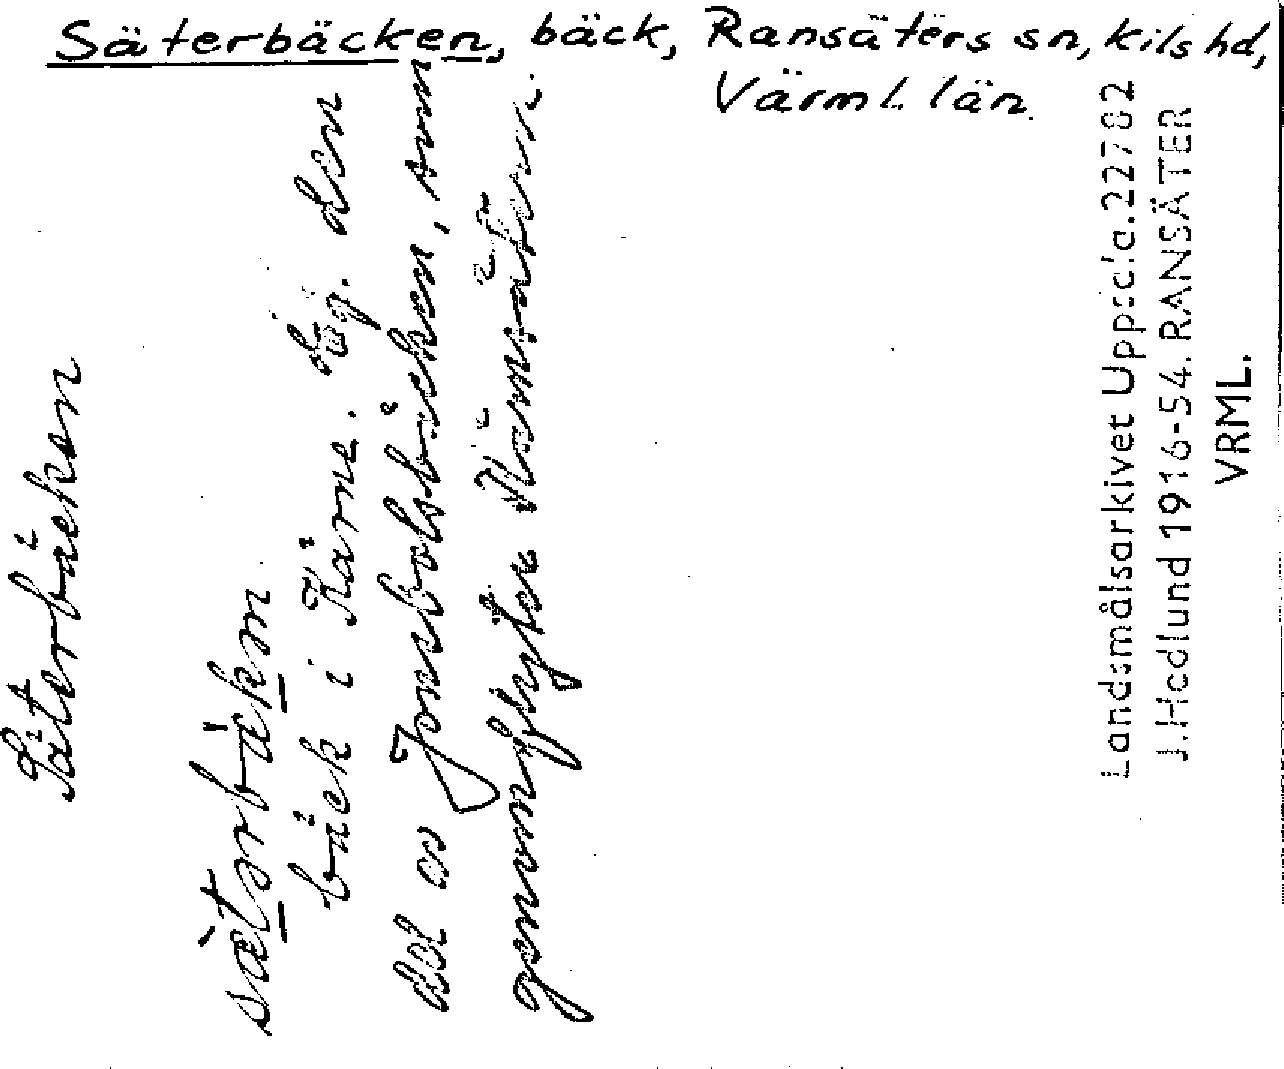 Säterbäcken, bäck, Ransäters sn, Kils hd,
Värml. län.
Säterbäcken
sætərbäkən
bäck i Kärne. Eg. den
del av Jonsbolsbäcken, som
genomflyter Kärnsätern.
Landsmålsarkivet Uppsala. 22782
J. Hedlund 1916-54. RANSÄTER
VRML.